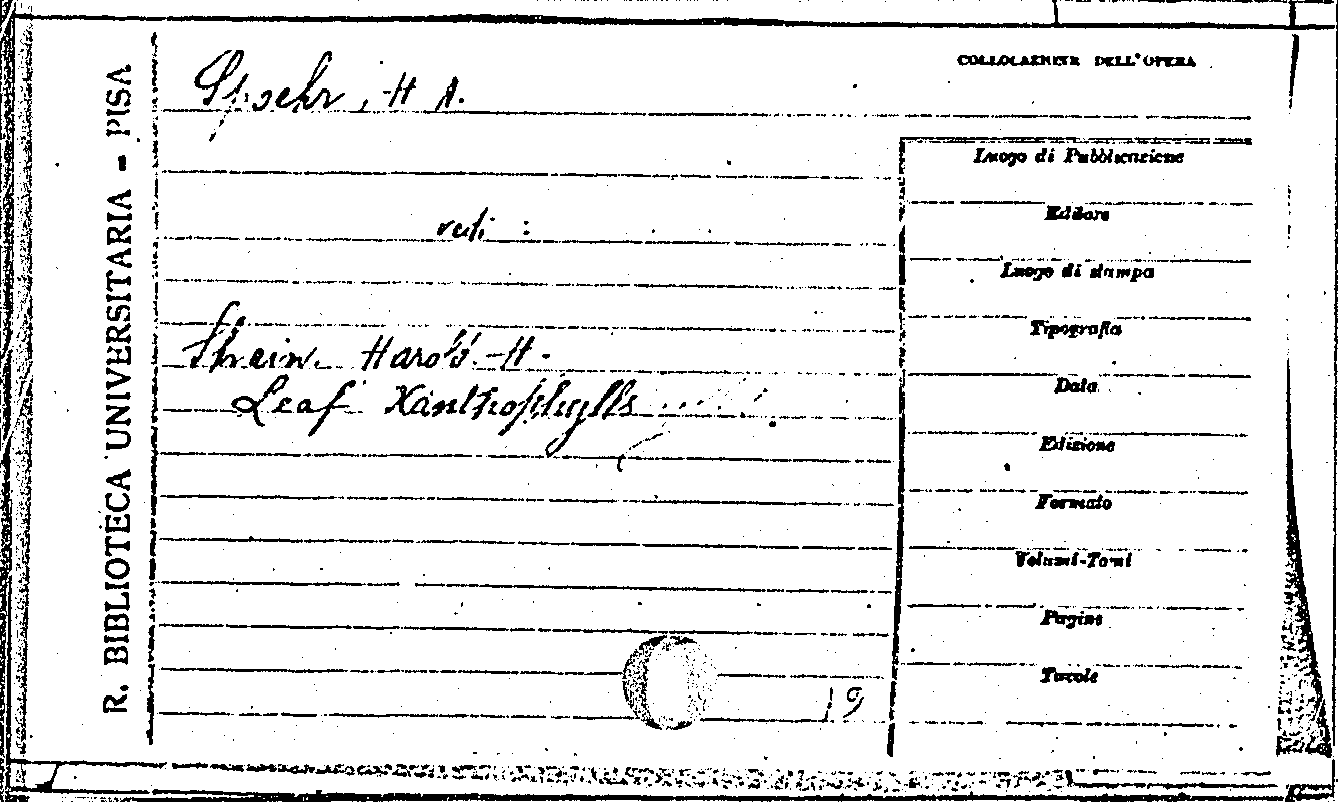 R. BIBLIOTECA UNIVERSITARIA - PISA
Spoehr, H A.
COLLOCAZIONE DELL'OPERA
vedi :
Strain. Harold. H.
Leaf Xanthophylls
19
Luogo di Pubblicazione
Editore
Luogo di stampa
Tipografia
Data
Edizione
Formato
Volumi-Tomi
Pagine
Tavole